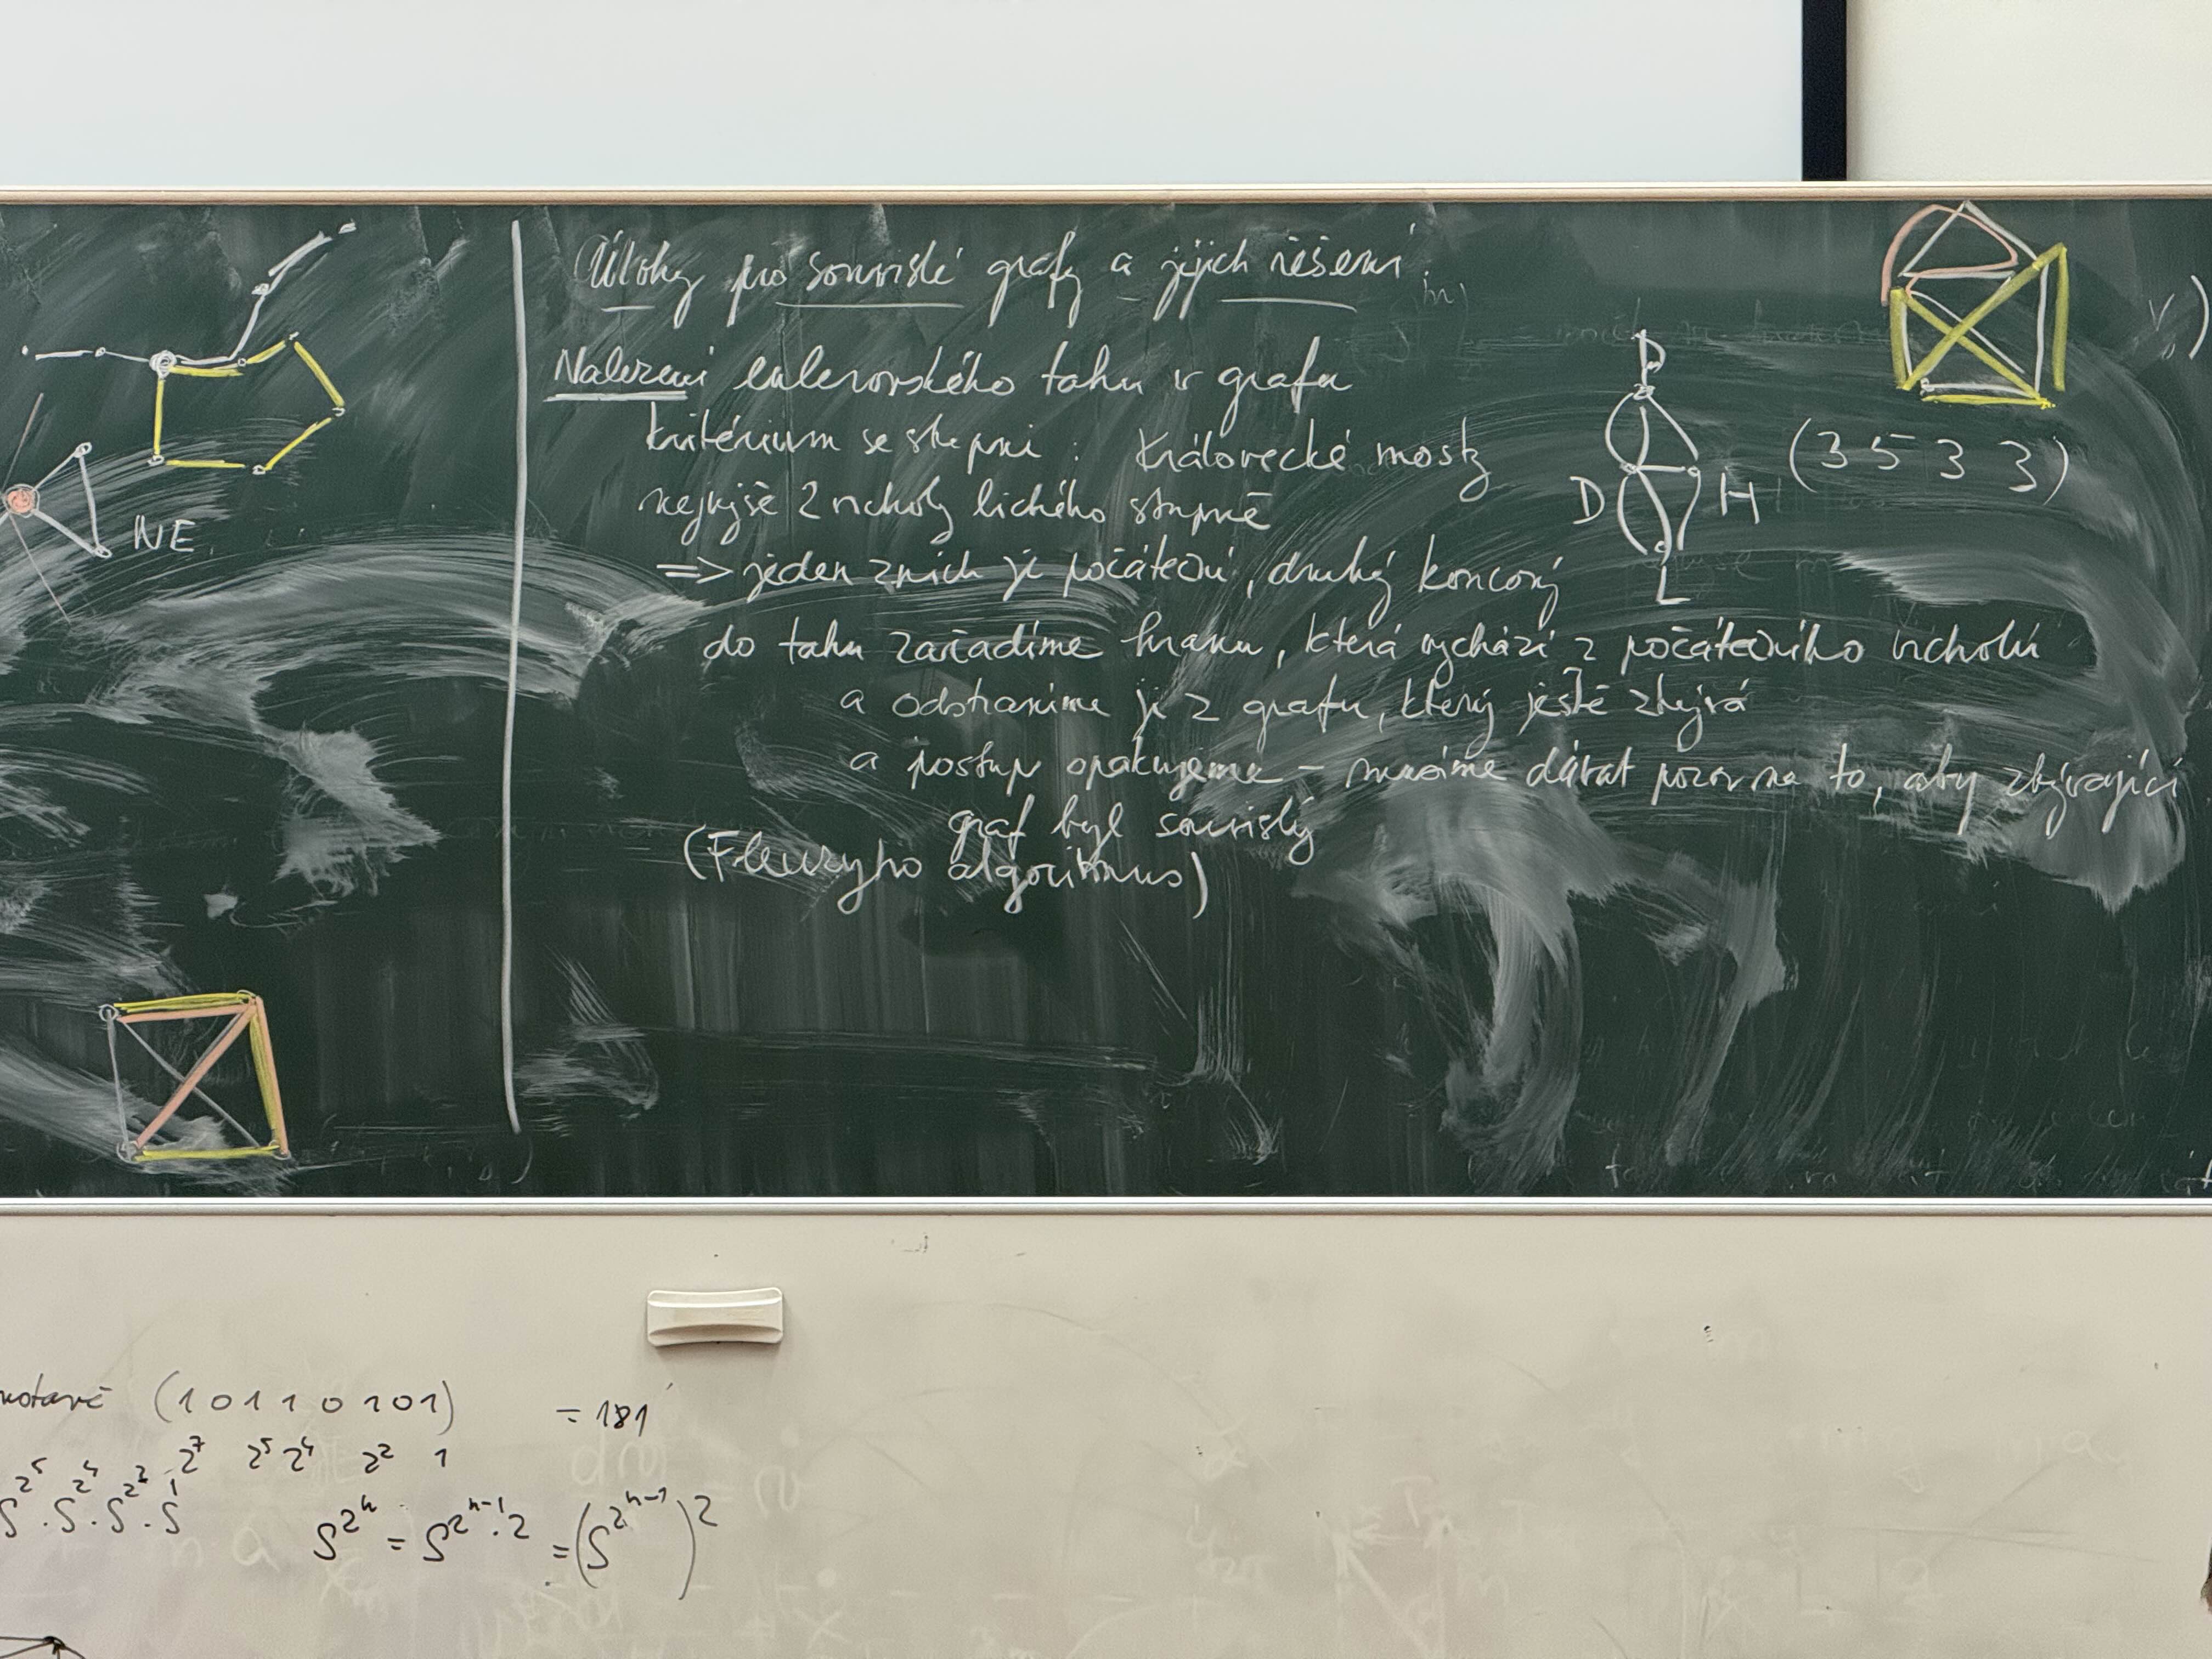 NE
Úlohy pro souvislé grafy a jejich řešení
Nalezení eulerovského tahu v grafu
kritérium se stupni : Královecké mosty
nejvýše 2 vrcholy lichého stupně
=> jeden z nich je počáteční, druhý koncový
do tahu zařadíme hranu, která vychází z počátečního vrcholu
a odstraníme ji z grafu, který ještě zbývá
a postup opakujeme – musíme dávat pozor na to, aby zbývající
graf byl souvislý
(Fleuryho algoritmus)
D H (3 5 3 3)
L
(1 0 1 1 0 1 0 1) = 181
2^7 2^5 2^4 2^2 1
S^{2^n} = S^{2^{n-1}·2} = (S^{2^{n-1}})^2